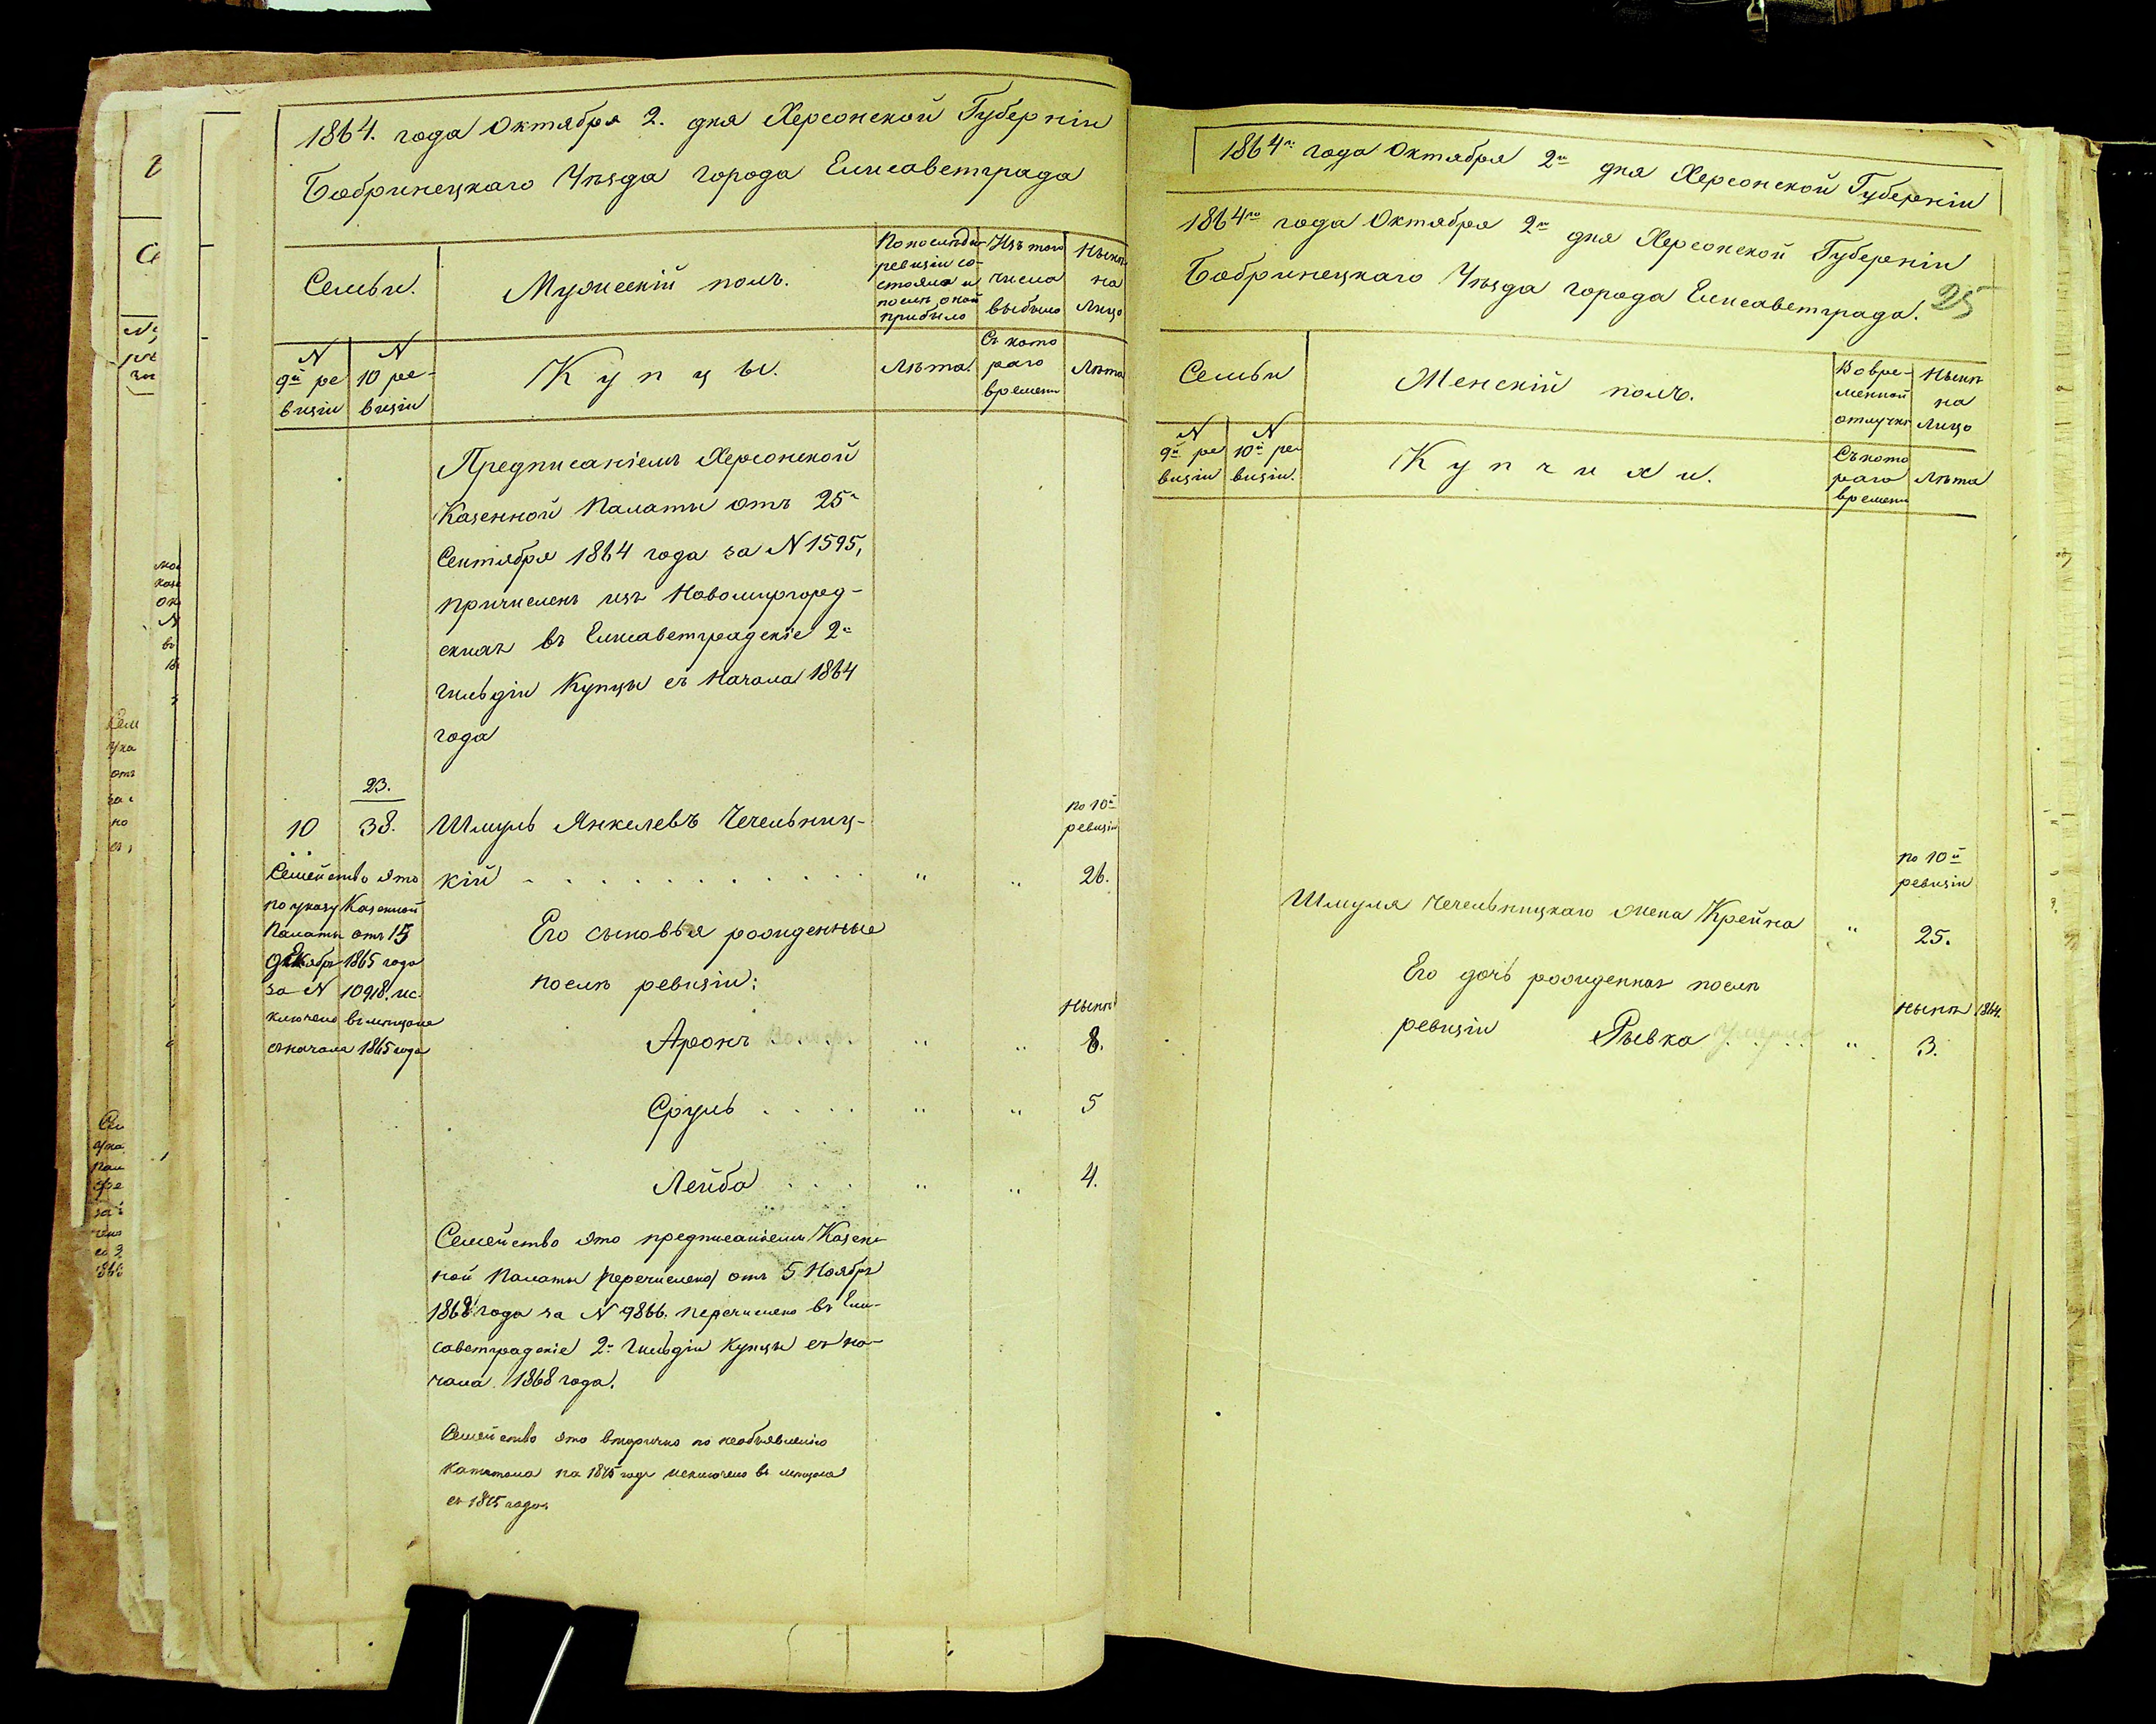 1864. года Октября 2. дня Херсонской Губерніи
Бобринецкаго Уѣзда города Елисаветграда
Семьи.
Мужескій полъ.
По послѣдн.
ревизіи со-
стояло и
послѣ оной
прибыло
Изъ того
числа
выбыло
Нынѣ
на
лицо
N
9й ре
визіи
N
10 ре-
визіи
Купцы.
Лѣта.
Съ кото
раго
времени
Лѣта
Предписаніемъ Херсонской
Казенной Палаты отъ 25
Сентября 1864 года за N 1595,
причисленъ изъ Новомиргород-
скихъ въ Елисаветградскіе 2й
гильдіи Купцы съ Начала 1864
года
23.
10 38. Шмуль Янкелевъ Чечельниц-
по 10й
ревизіи
кій . . . . . . . . . . . " " 26.
Семейство это
по указу Казенной
Палаты отъ 15
Декабр 1865 года
за N 10918. ис-
ключено въ мѣщане
съ начала 1865 года
Его сыновья рожденные
послѣ ревизіи:
Нынѣ
Аронъ . . . . " " 8.
Сруль . . . . " " 5
Лейба . . . " " 4.
Семейство это предписаніемъ Казен-
ной Палаты перечислено отъ 5 Ноября
1868 года за N 9866. перечислено въ Ели-
саветградскіе 2й гильдіи Купцы съ на-
чала 1868 года.
Семейство это вторично по необъявленію
капитала на 1875 годъ исключено въ мѣщане
съ 1875 года
1864го года Октября 2го дня Херсонской Губерніи
1864го года Октября 2го дня Херсонской Губерніи
Бобринецкаго Уѣзда города Елисаветграда. 25
Семьи
Женскій полъ.
Во вре-
менной
отлучкѣ
Нынѣ
на
лицо
N
9й ре
визіи
N
10й ре-
визіи.
Купчихи.
Съ кото
раго
времени
Лѣта
по 10й
ревизіи
Шмуля Чечельницкаго жена Крейна " 25.
Его дочь рожденная послѣ
нынѣ 1864.
ревизіи Рывка умерла " 3.